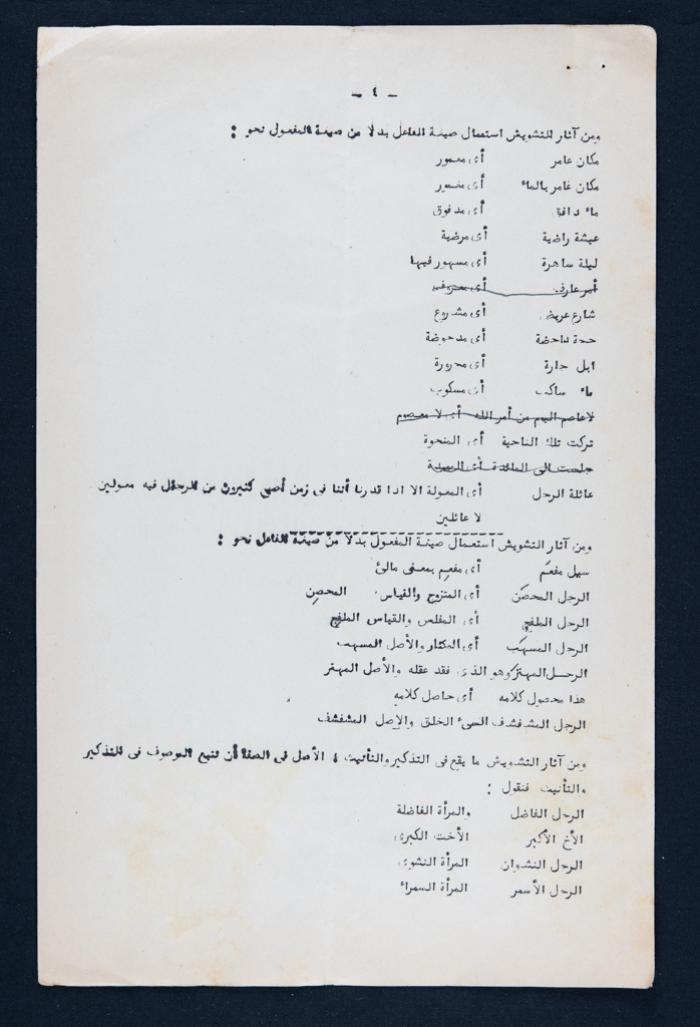 - ٤ -
ومن آثار التشويش استعمال صيغة الفاعل بدلا من صيغة المفعول نحو :
مكان عامر أى معمور
مكان غامر بالماء أى مغمور
ماء دافق أى مدفوق
عيشة راضية أى مرضية
ليلة ساهرة أى مسهور فيها
أمر عارف أى معروف
شارع عريض أى مشروع
حجة داحضة أى مدحوضة
ابل جارة أى مجرورة
ماء ساكب أى مسكوب
لا عاصم اليوم من أمر الله أى لا معصوم
تركت تلك الناحية أى المنحوة
جلست الى المائدة أى
عائلة الرجل أى المعولة الا اذا قدرنا أننا فى زمن أصبح كثيرون من الرجال فيه معولين
لا عائلين
ومن آثار التشويش استعمال صيغة المفعول بدلا من صيغة الفاعل نحو :
سيل مفعَم أى مفعِم بمعنى مالئ
الرجل المحصَن أى المتزوج والقياس المحصِن
الرجل الملفج أى المفلس والقياس الملفِج
الرجل المسهَب أى المكثار والأصل المسهب
الرجل المهتَر وهو الذى فقد عقله والأصل المهتر
هذا محصول كلامه أى حاصل كلامه
الرجل المشفشف السىء الخلق والاصل المشفشف
ومن آثار التشويش ما يقع فى التذكير والتأنيث ، الأصل فى الصفة أن تتبع الموصوف فى التذكير
والتأنيث فنقول :
الرجل الفاضل والمرأة الفاضلة
الأخ الأكبر الأخت الكبرى
الرجل النشوان المرأة النشوى
الرجل الأسمر المرأة السمراء